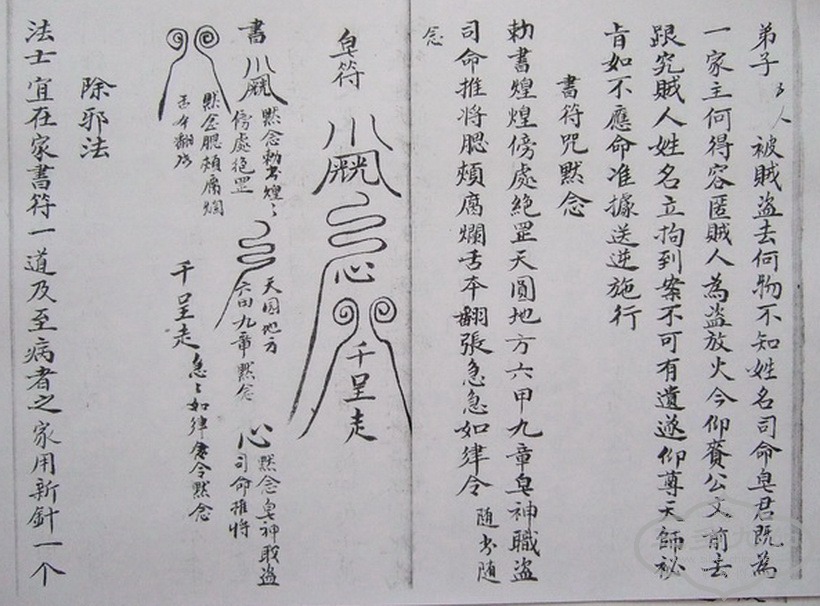 弟子 厶人 被賊盜去何物不知姓名司命皂君既為
一家主何得容匿賊人為盜放火今仰賚公文前去
跟究賊人姓名立拘到案不可有遺遂仰尊天師祕
旨如不應命准據送逓施行
書符咒默念
勅書煌煌傍處絶罡天圓地方六甲九章皂神職盜
司命推將腮頰腐爛舌本翻張急急如律令 隨書隨
念
皂符
心
千呈走
書
默念勅書煌〻
傍處绝罡
默念腮頰腐爛
舌本翻張
天圓地方
六甲九章默念
心 默念皂神職盜
司命推將
千呈走 急〻如律令默念
除邪法
法士宜在家書符一道及至病者之家用新針一个